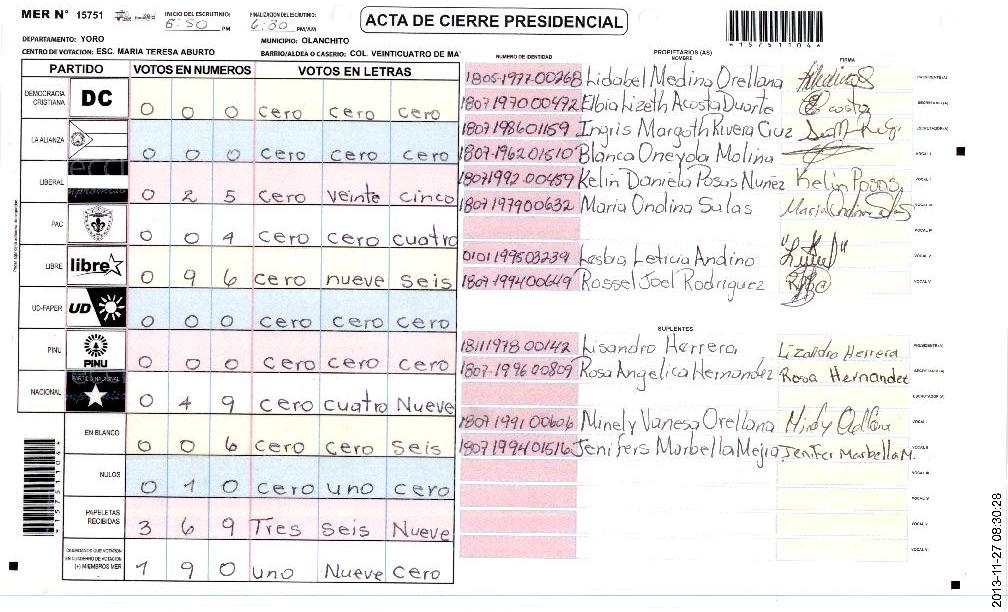 MER N° 15751
INICIO DEL ESCRUTINIO: 5:50 PM
FINALIZACION DEL ESCRUTINIO: 6:30 PM/AM
ACTA DE CIERRE PRESIDENCIAL
*15751104*
DEPARTAMENTO: YORO
MUNICIPIO: OLANCHITO
CENTRO DE VOTACION: ESC. MARIA TERESA ABURTO
BARRIO/ALDEA O CASERIO: COL. VEINTICUATRO DE MA
PARTIDO VOTOS EN NUMEROS VOTOS EN LETRAS
DEMOCRACIA CRISTIANA DC 0 0 0 cero cero cero
LA ALIANZA 0 0 0 cero cero cero
LIBERAL 0 2 5 cero veinte cinco
PAC 0 0 4 cero cero cuatro
LIBRE libre 0 9 6 cero nueve seis
UD-FAPER UD 0 0 0 cero cero cero
PINU PINU 0 0 0 cero cero cero
NACIONAL PARTIDO NACIONAL 0 4 9 cero cuatro Nueve
EN BLANCO 0 0 6 cero cero seis
NULOS 0 1 0 cero uno cero
PAPELETAS RECIBIDAS 3 6 9 Tres seis Nueve
CIUDADANOS QUE VOTARON EN CUADERNO DE VOTACION (+) MIEMBROS MER 1 9 0 uno Nueve cero
*15751104*
NUMERO DE IDENTIDAD
PROPIETARIOS (AS)
NOMBRE
FIRMA
1805-1977-00268 Lidabel Medina Orellana PRESIDENTE(A)
1807197000472 Elbia Lizeth Acosta Duarte Costa SECRETARIO(A)
1807198601159 Ingris Margoth Rivera Cruz ESCRUTADOR(A)
1807-196201510 Blanca Oneyda Molina VOCAL I
1807-1992-00459 Kelin Daniela Posas Nunez Kelin Posas VOCAL II
1807197900632 Maria Ondina Salas Maria Ondina Salas VOCAL III
VOCAL IV
0101199503239 Lesbia Leticia Andino VOCAL V
1807-199400649 Rossel Joel Rodriguez VOCAL VI
SUPLENTES
18111978-00142 Lisandro Herrera Lizandro Herrera PRESIDENTE(A)
1807-199600809 Rosa Angelica Hernandez Rosa Hernandez SECRETARIO(A)
ESCRUTADOR(A)
1807199100606 Minely Vanesa Orellana VOCAL I
1807199401516 Jenifers Marbella Mejia Jenifer Marbella M. VOCAL II
VOCAL III
VOCAL IV
VOCAL V
VOCAL VI
2013-11-27 08:30:28